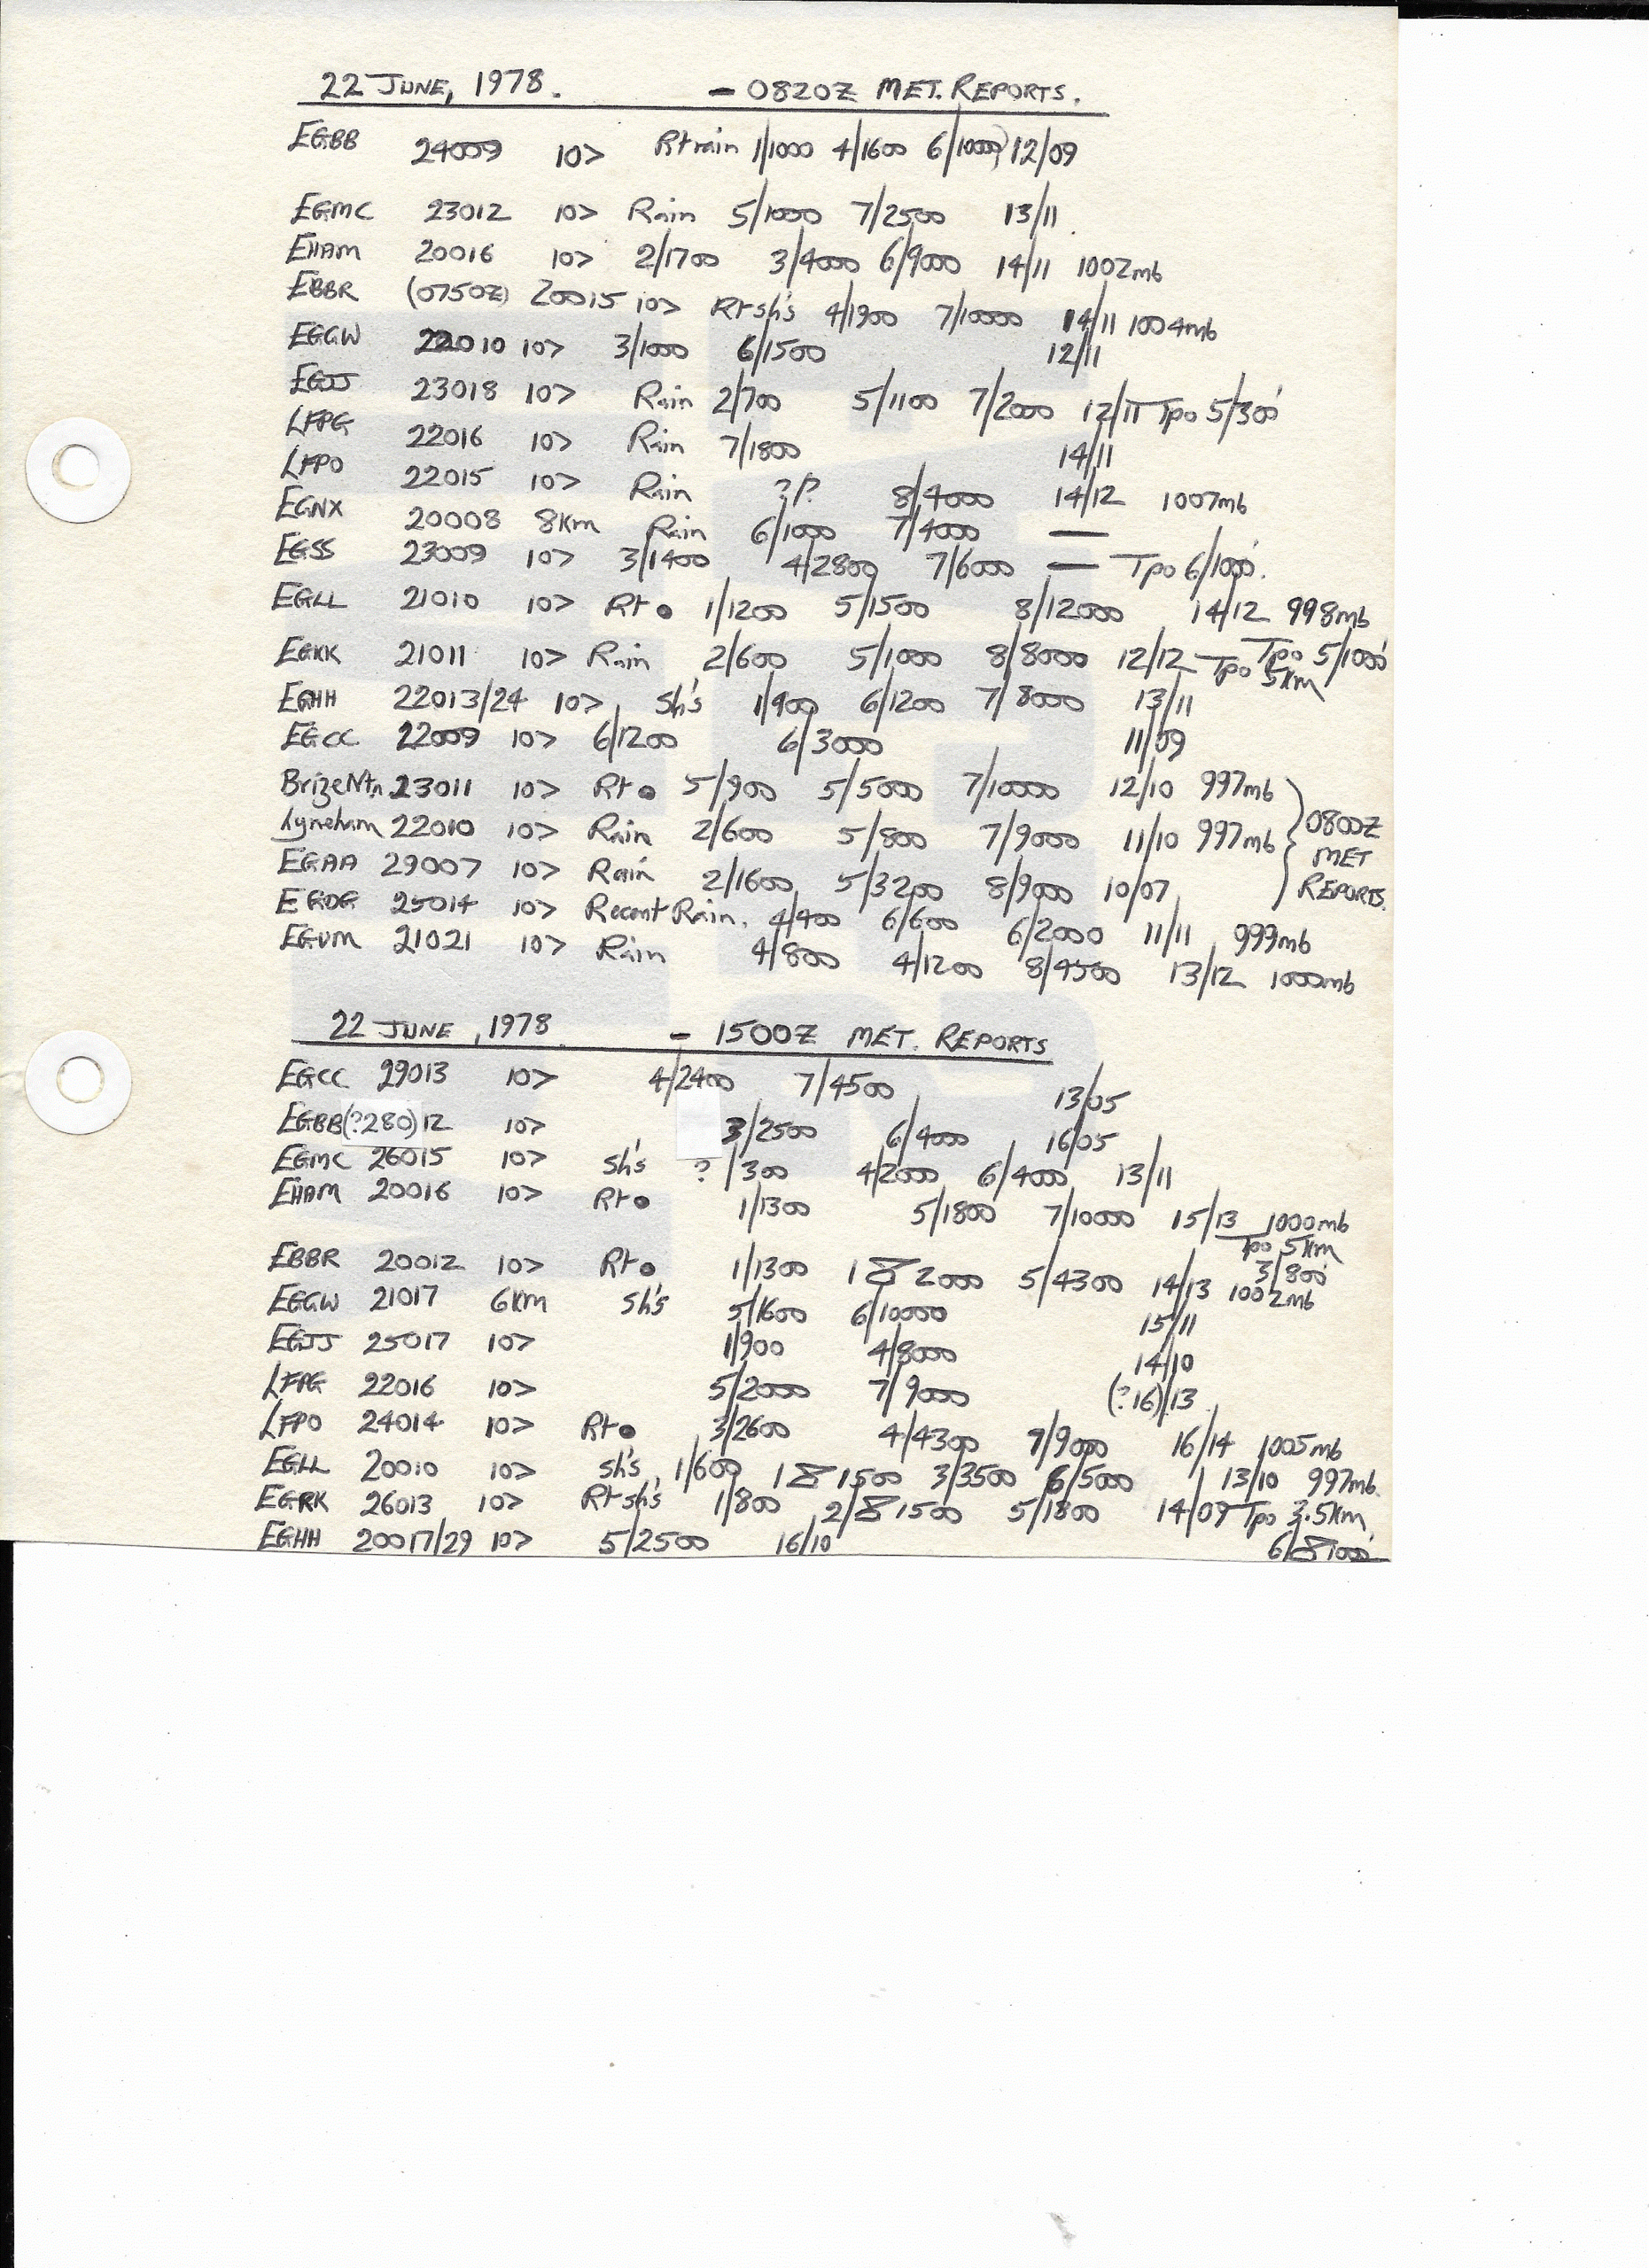 22 JUNE, 1978. - 0820Z MET. REPORTS.
EGBB 24009 10> Rt rain 1/1000 4/1600 6/1000 12/09
EGMC 23012 10> Rain 5/1000 7/2500 13/11
EHAM 20016 10> 2/1700 3/4000 6/9000 14/11 1002mb
EBBR (0750Z) 20015 10> Rt sh's 4/1900 7/10000 14/11 1004mb
EGGW 22010 10> 3/1000 6/1500 12/11
EGJJ 23018 10> Rain 2/700 5/1100 7/2000 12/11 Tpo 5/300'
LFPG 22016 10> Rain 7/1800 14/11
LFPO 22015 10> Rain ?/? 8/4000 14/12 1007mb
EGNX 20008 8Km Rain 6/1000 7/4000 —
EGSS 23009 10> 3/1400 4/2800 7/6000 — Tpo 6/1000'.
EGLL 21010 10> Rt ● 1/1200 5/1500 8/12000 14/12 998mb
Tpo 5/1000'
EGKK 21011 10> Rain 2/600 5/1000 8/8000 12/12 Tpo 5Km
EGHH 22013/24 10> sh's 1/900 6/1200 7/8000 13/11
EGCC 22009 10> 6/1200 6/3000 11/09
BrizeNtn 23011 10> Rt ● 5/900 5/5000 7/10000 12/10 997mb
Lyneham 22010 10> Rain 2/600 5/800 7/9000 11/10 997mb } 0800Z MET REPORTS.
EGAA 29007 10> Rain 2/1600 5/3200 8/9000 10/07
EGDG 25014 10> Recent Rain. 4/400 6/600 6/2000 11/11 999mb
EGUM 21021 10> Rain 4/800 4/1200 8/4500 13/12 1000mb
22 JUNE, 1978 - 1500Z MET. REPORTS
EGCC 29013 10> 4/2400 7/4500 13/05
EGBB (?280)12 10> 3/2500 6/4000 16/05
EGMC 26015 10> sh's ?/300 4/2000 6/4000 13/11
EHAM 20016 10> Rt ● 1/1300 5/1800 7/10000 15/13 1000mb
Tpo 5Km
3/800'
EBBR 20012 10> Rt ● 1/1300 1 8 2000 5/4300 14/13 1002mb
EGGW 21017 6Km sh's 5/1600 6/10000 15/11
EGJJ 25017 10> 1/900 4/8000 14/10
LFPG 22016 10> 5/2000 7/9000 (?16)/13
LFPO 24014 10> Rt ● 3/2600 4/4300 7/9000 16/14 1005mb
EGLL 20010 10> sh's 1/600 1 8 1500 3/3500 6/5000 13/10 997mb.
EGKK 26013 10> Rt sh's 1/800 2/8 1500 5/1800 14/09 Tpo 3.5Km,
6/8 1000'
EGHH 20017/29 10> 5/2500 16/10